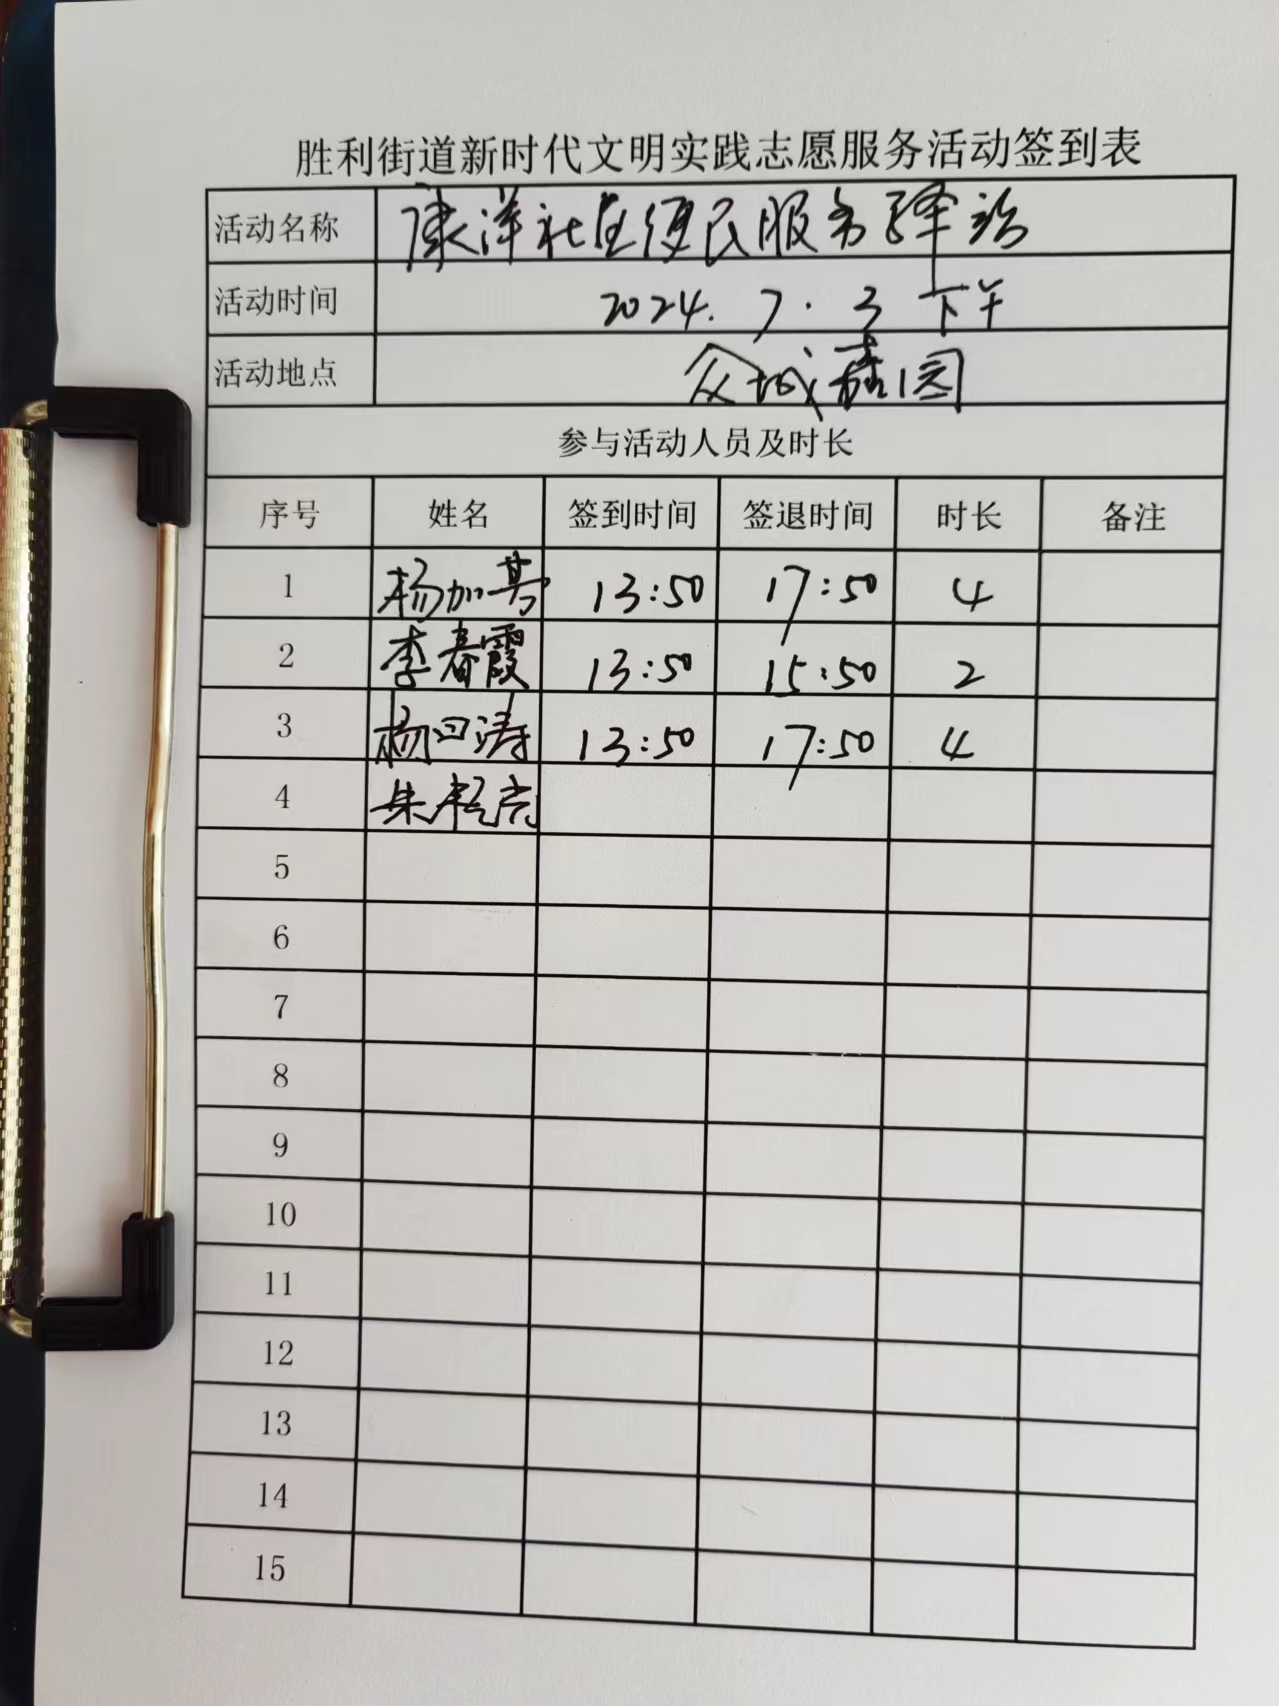 胜利街道新时代文明实践志愿服务活动签到表
活动名称 康洋社区便民服务驿站
活动时间 2024.7.3 下午
活动地点 众城嘉园
参与活动人员及时长
序号 姓名 签到时间 签退时间 时长 备注
1 杨加 13:50 17:50 4
2 李春霞 13:50 15:50 2
3 杨日涛 13:50 17:50 4
4 朱
5
6
7
8
9
10
11
12
13
14
15